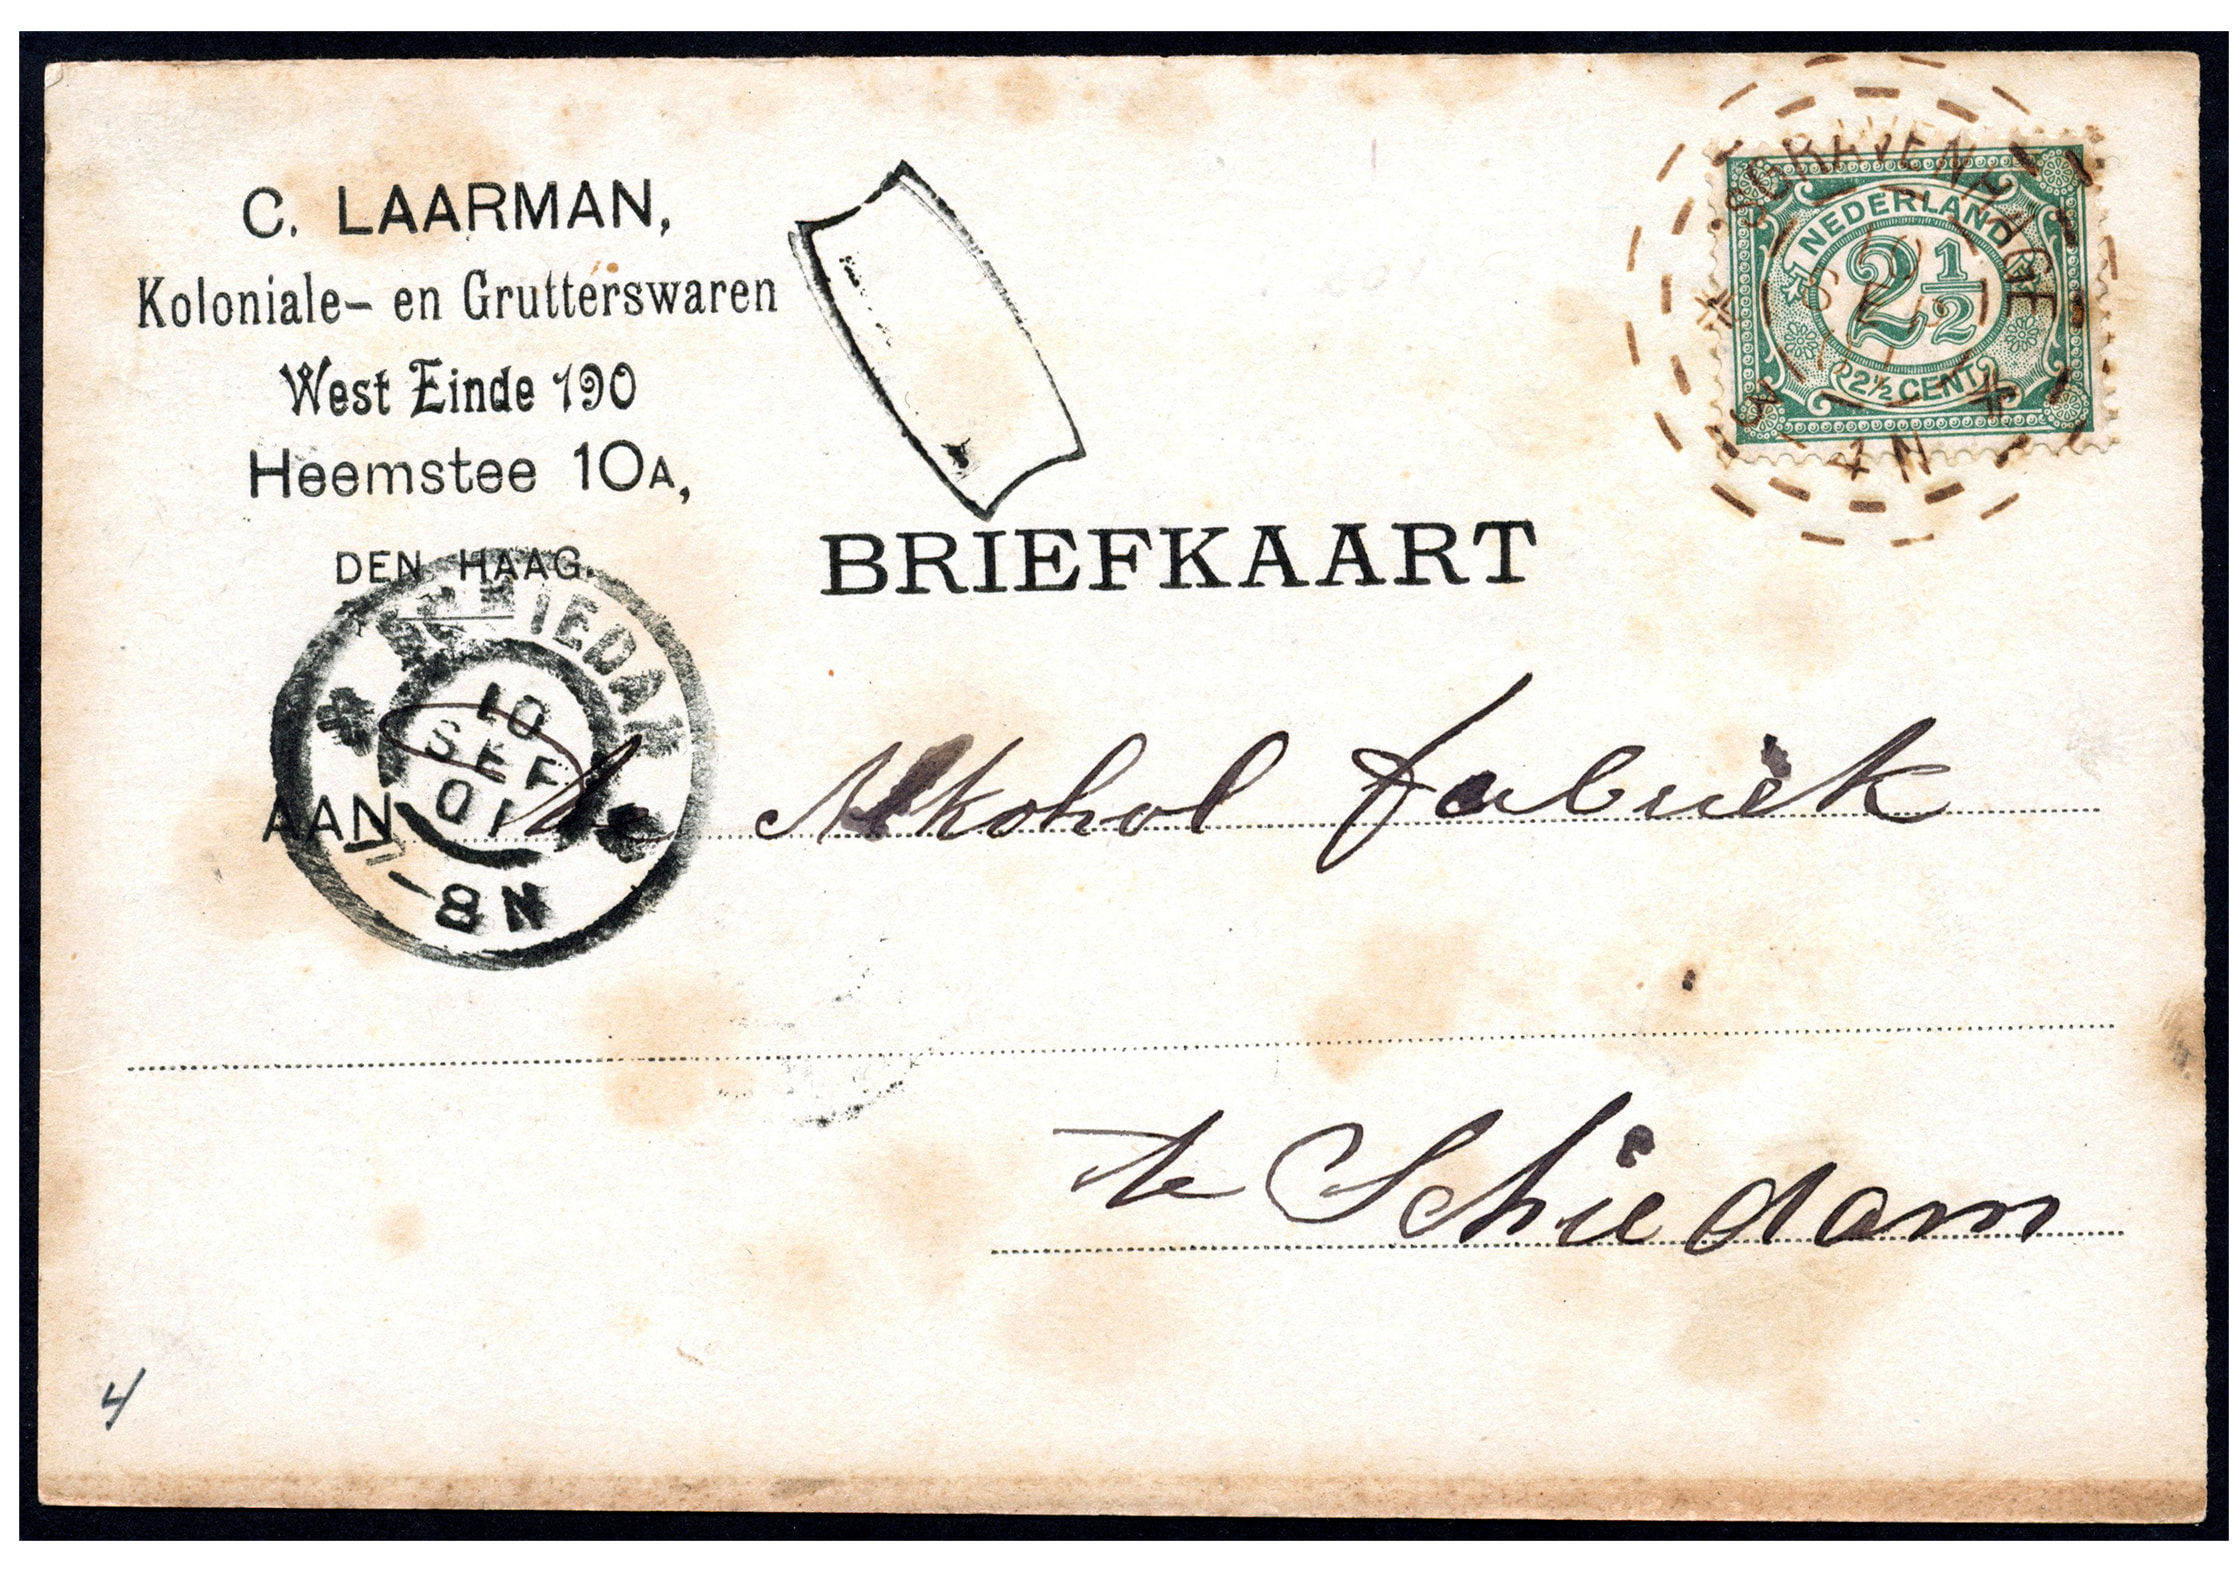 C. LAARMAN,
Koloniale- en Grutterswaren
West Einde 190
Heemstee 10A,
DEN HAAG.
'S GRAVENHAGE
10 SEP 01
3-4N
NEDERLAND
2½
2½ CENT
BRIEFKAART
SCHIEDAM
10
SEP
01
7-8N
AAN de Alkohol fabriek
te Schiedam
4